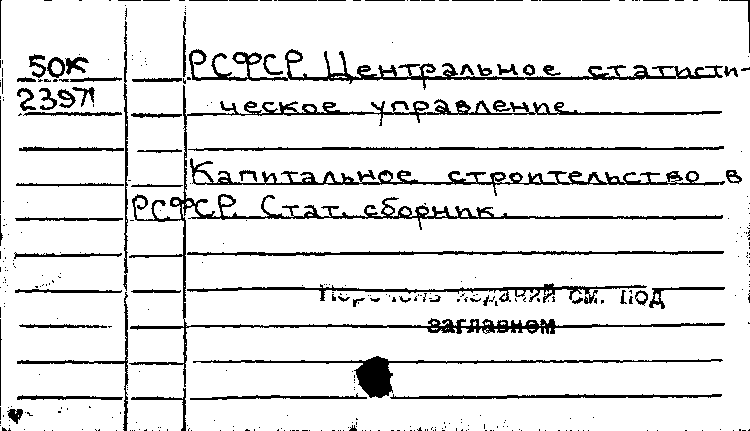 50К
2397
РСФСР. Центральное статисти-
ческое управление.
Капитальное строительство в
РСФСР. Стат. сборник.
Перечень изданий см. под
заглавием